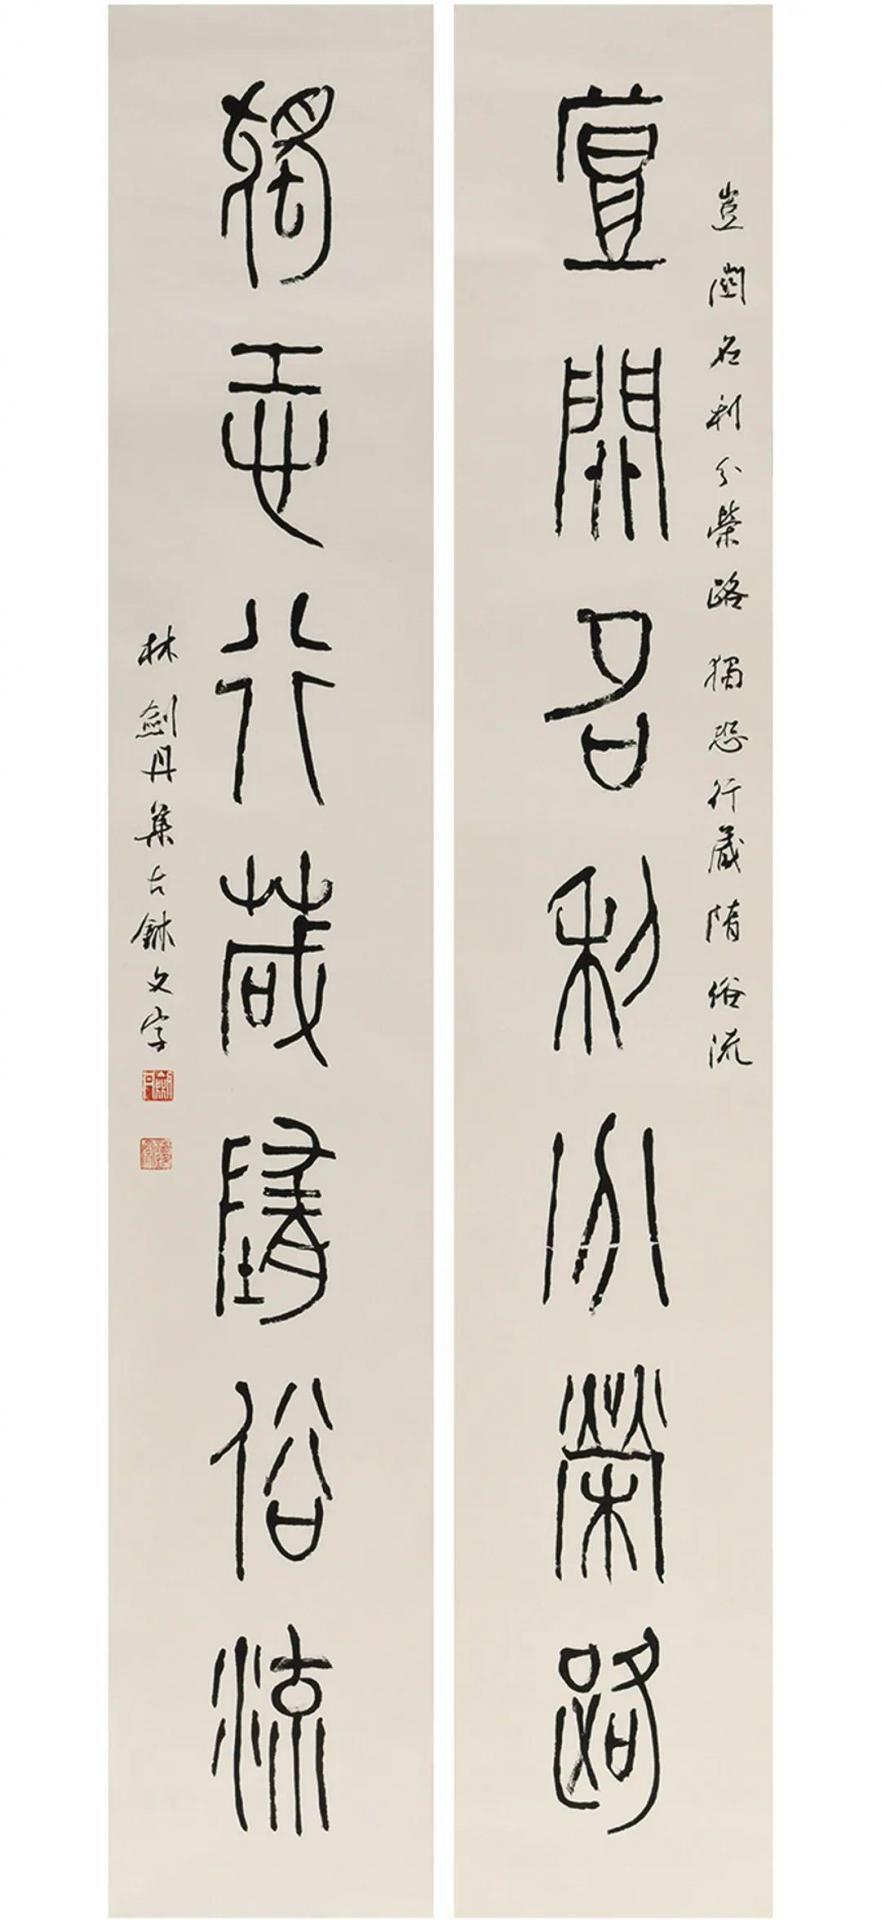 豈關名利分榮路獨恐行藏隋俗流
豈關名利分榮路
獨恐行藏隨俗流
林劍丹集古鉨文字